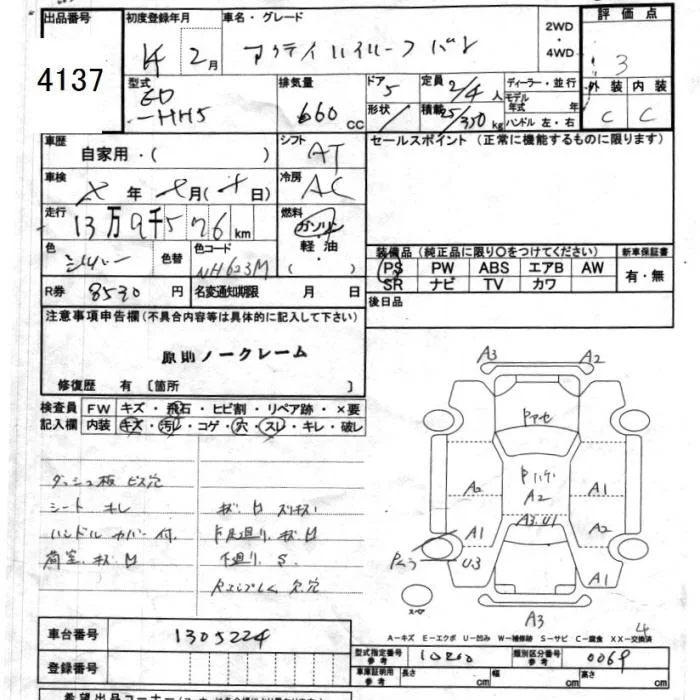 出品番号 初度登録年月 車名・グレード 2WD・4WD 評価点
4137 14 2月 アクティハイルーフ バン 3
型式 排気量 ドア 5 定員 2/4人 ディーラー・並行 外装 内装
-HH5 660cc 形状 積載 kg モデル年式 年 C C
ハンドル 左・右
車歴 自家用・( ) シフト AT セールスポイント (正常に機能するものに限ります)
車検 年 月( 日) 冷房 AC
走行 13万9千576km 燃料 ガソリン 軽油・( )
色 シルバー 色替 色コード NH623M 装備品(純正品に限り○をつけてください) 新車保証書
PS PW ABS エアB AW 有・無
SR ナビ TV カワ
R券 8530円 名変通知期限 月 日 後日品
注意事項申告欄(不具合内容等は具体的に記入して下さい)
原則ノークレーム
修復歴 有 〔箇所 〕
検査員記入欄 FW キズ・飛石・ヒビ割・リペア跡・×要
内装 キズ・汚レ・コゲ・穴・スレ・キレ・破レ
ダッシュ板 ビス穴
シート キレ
ハンドル カバー付.
荷室 キズ M
下廻り S.
A3 A2
A2
A2 A1
A3.U1
A1 A2
U3 A1
A3
スペア
A−キズ E−エクボ U−凹み W−補修跡 S−サビ C−腐食 XX−交換済
車台番号 1305224
登録番号
型式指定番号 参考 類別区分番号 参考 0069
車庫証明用 参考 長さ cm 幅 cm 高さ cm
希望出品コーナー